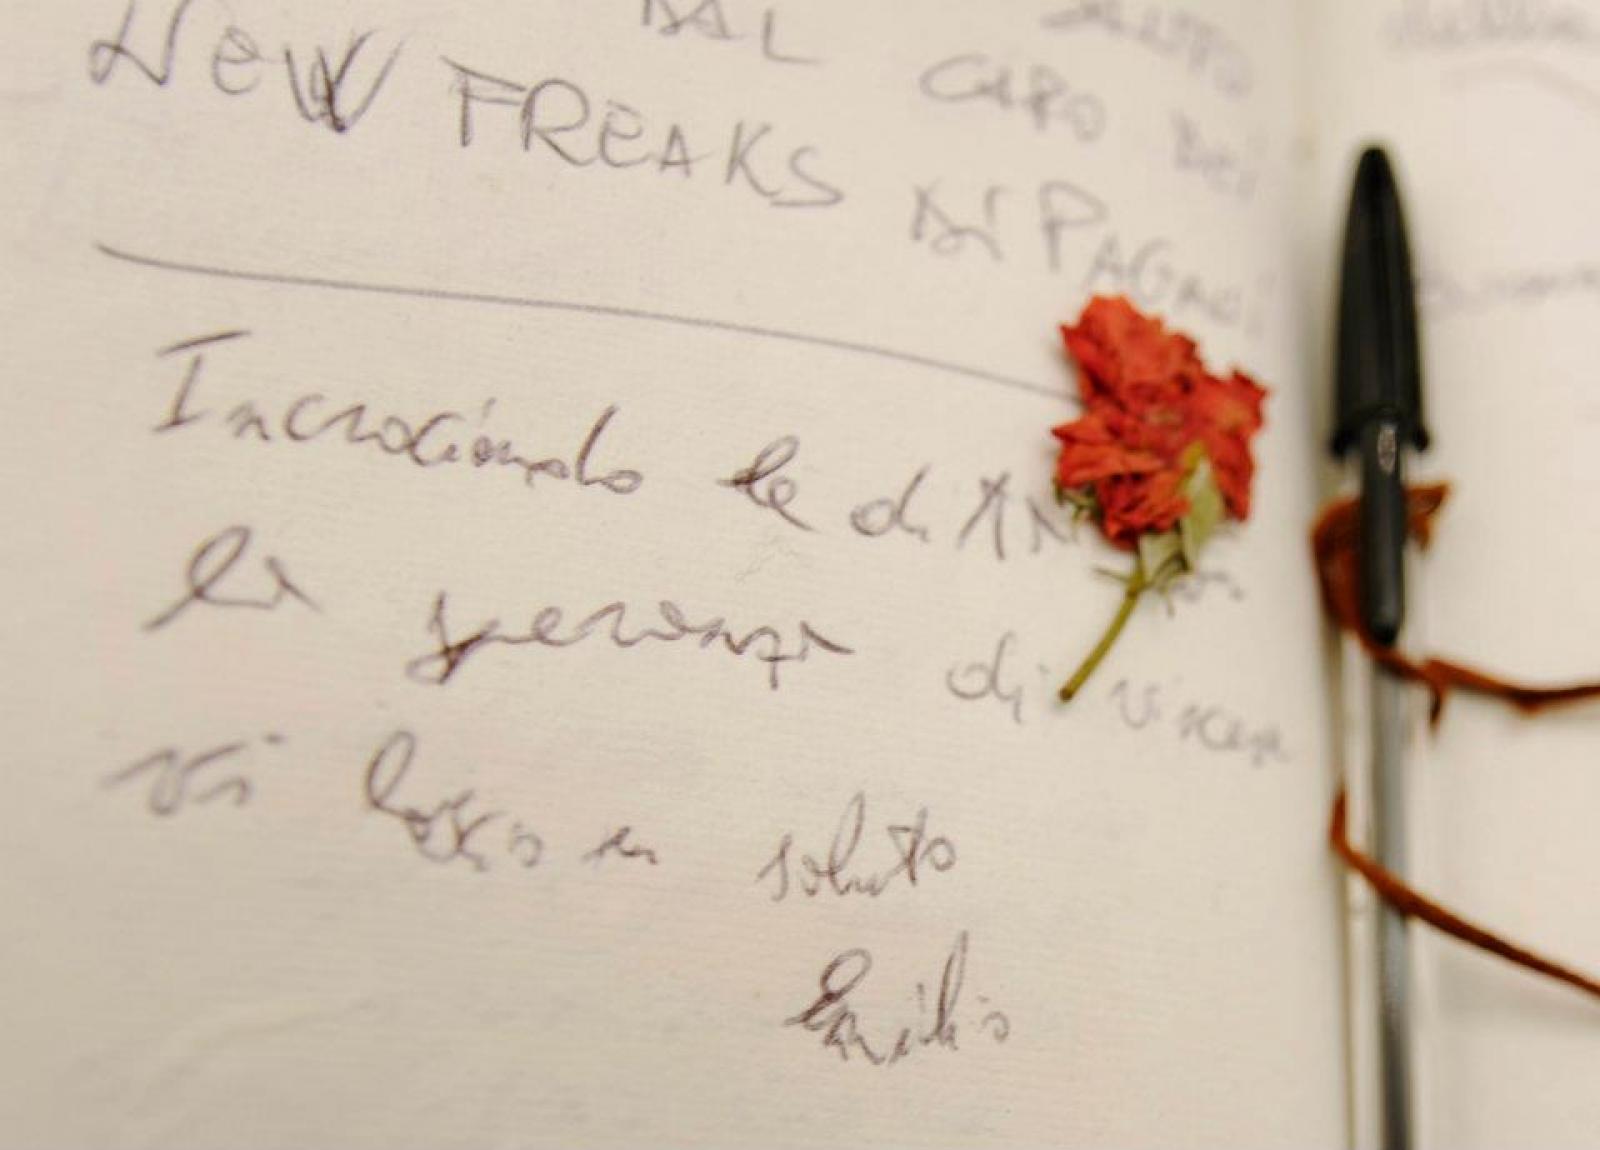 DAL CAPO DEI
NEW FREAKS DI PAGANI
Incrociando le dita
la speranza di vincere
vi lascio un saluto
Emilio